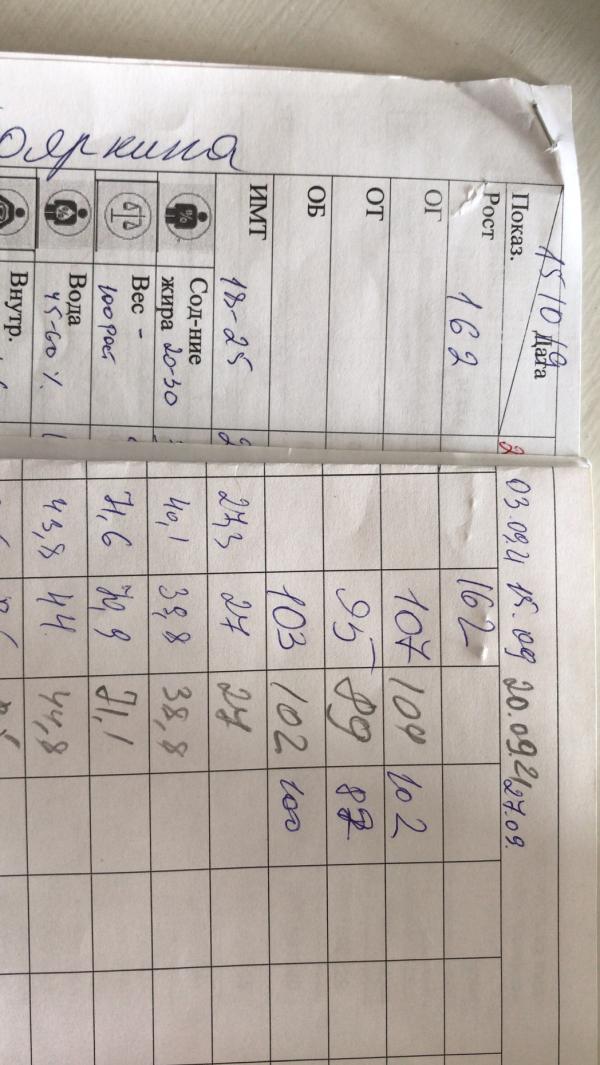 ояркина
Показ. Дата 15 10 19 03.09.21 15.09 20.09.21 27.09.
Рост 162 162
ОГ 107 102
ОТ 95 89 87
ОБ 103 102 100
ИМТ 18-25 27,3 27 27
Сод-ние
жира 20-30 40,1 39,8 38,8
Вес -
100 рост 71,6 70,9 71,1
Вода
45-60% 43,8 44 44,8
Внутр.